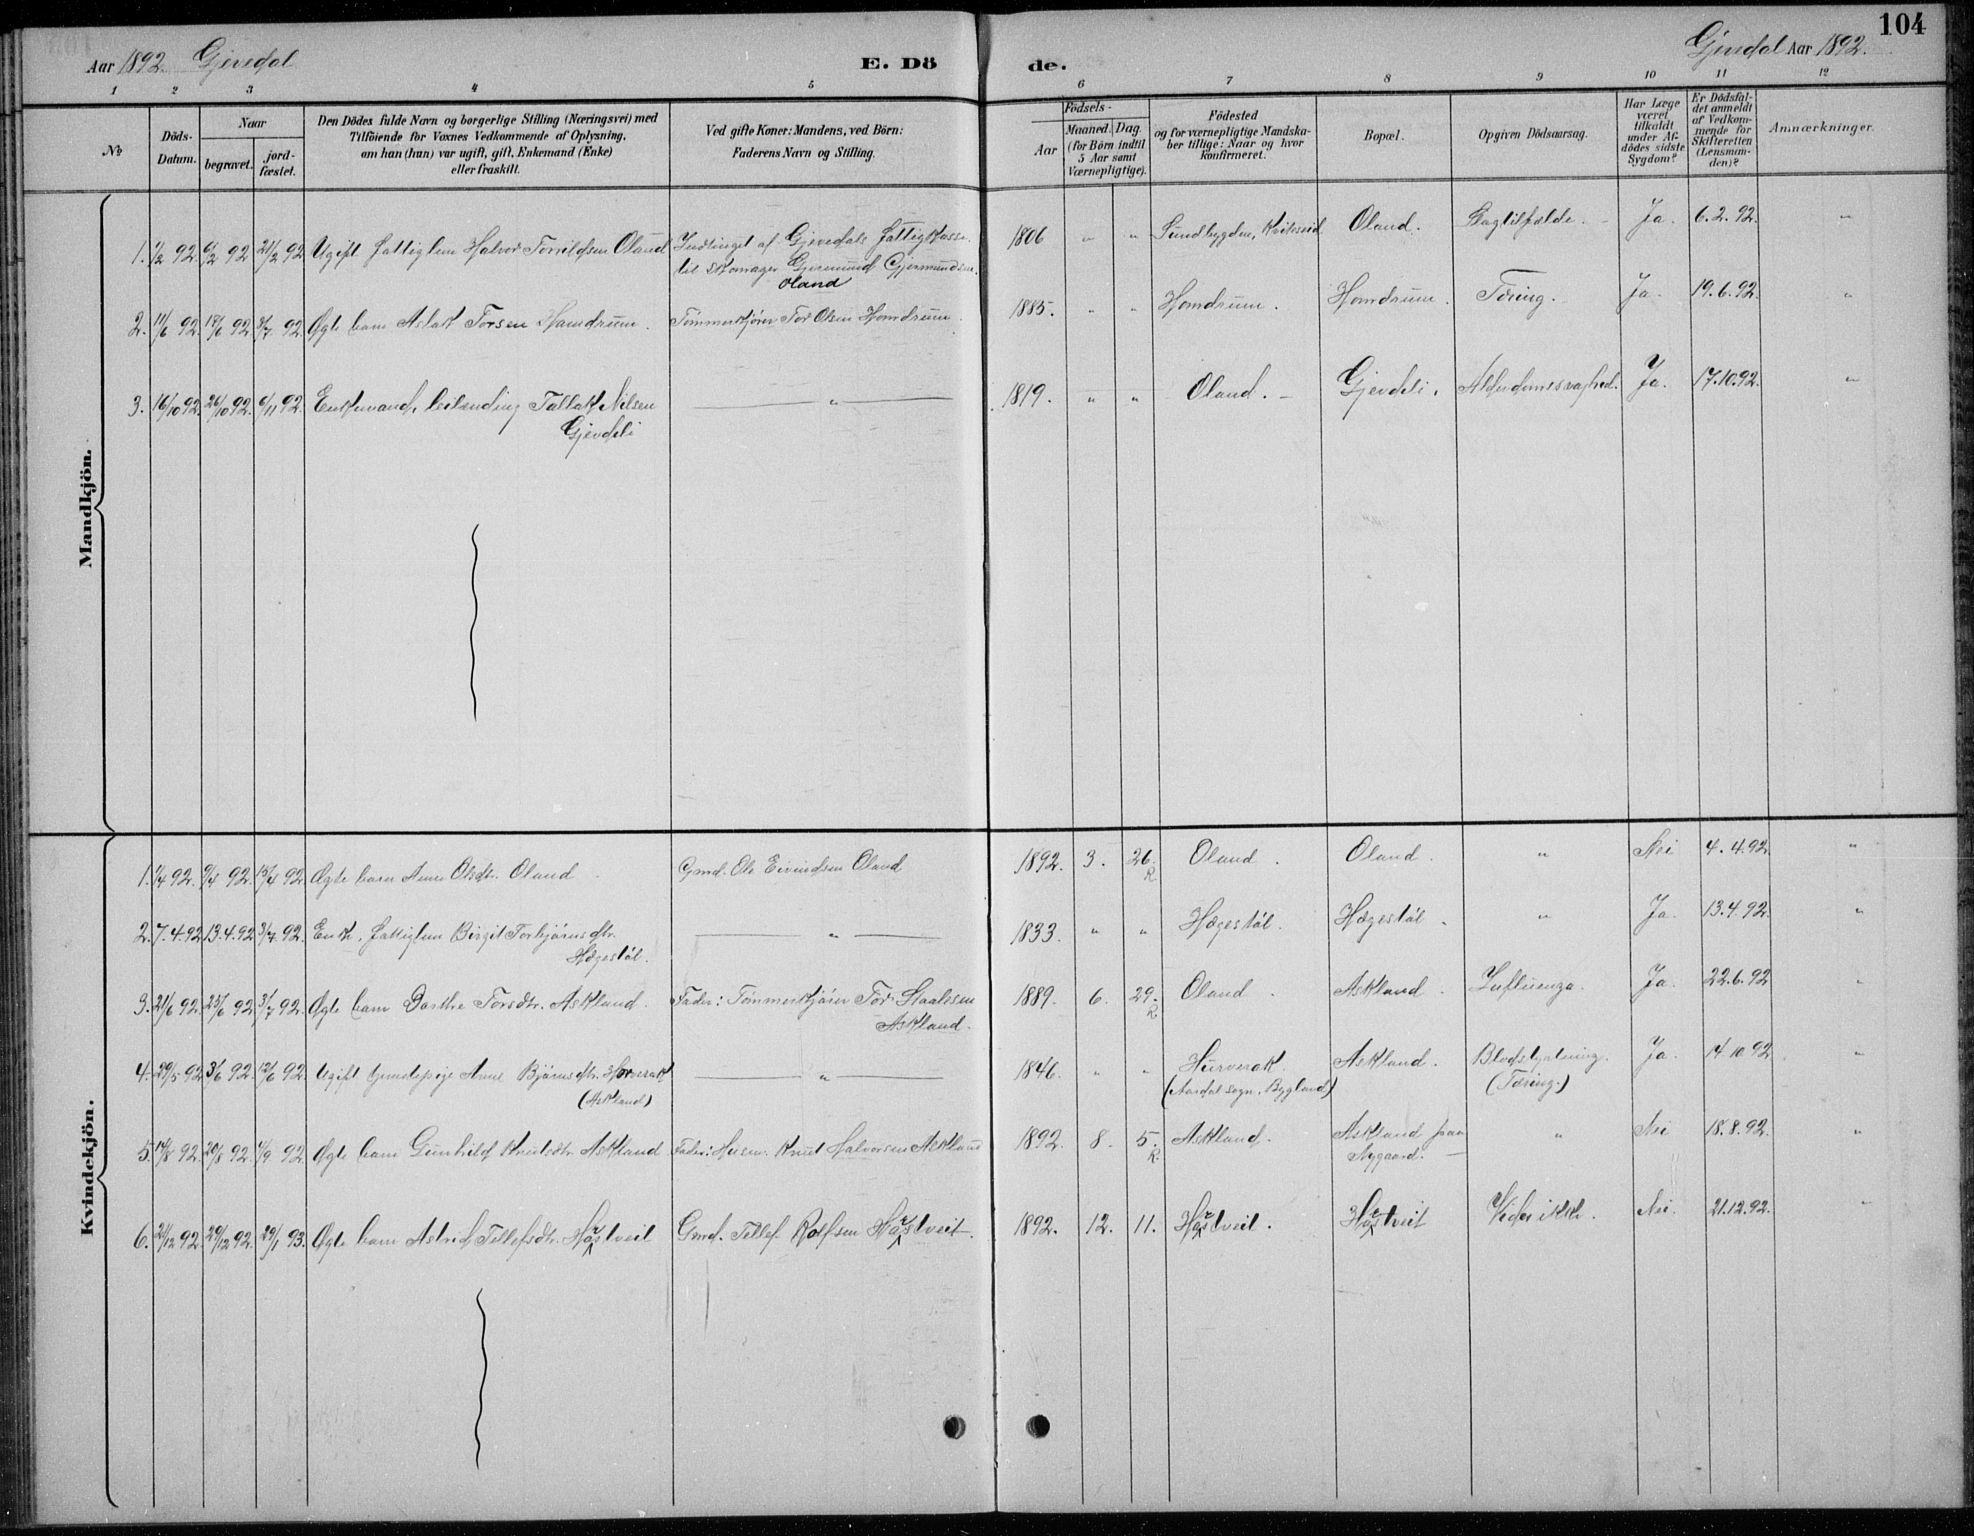 104
Aar 1892. Gjevedal E. Dö de. Gjevedal Aar 1892.
1 2 3 4 5 6 7 8 9 10 11 12
No
Döds-
Datum.
Naar
begravet.
jord-
fæstet.
Den Dödes fulde Navn og borgerlige Stilling (Næringsvei) med
Tilföiende for Voxnes Vedkommende af Oplysning,
om han (hun) var ugift, gift, Enkemand (Enke)
eller fraskilt.
Ved gifte Koner: Mandens, ved Börn:
Faderens Navn og Stilling.
Födsels-
Aar
Maaned. Dag
(for Börn indtil
5 Aar samt
Værnepligtige).
Födested
og for værnepligtige Mandska-
ber tillige: Naar og hvor
konfirmeret.
Bopæl.
Opgiven Dödsaarsag.
Har Læge
været
tilkaldt
under Af-
dödes sidste
Sygdom?
Er Dödsfal-
det anmeldt
af Vedkom-
mende for
Skifteretten
(Lensman-
den)?
Anmærkninger.
Mandkjön.
1. 1/2 92. 6/2 92 21/2 92 Ugift fattiglem Halvor Torvildsen Oland Indtinget af Gjevedals fattigkasse 1806 " " Sundbygden, Kviteseid Oland. Slagtilfælde. Ja. 6.2.92. "
til skomager Gjermund Gjermundsen
Oland
2. 11/6 92. 17/6 92. 3/7 92. Øgte barn Aslak Torsen Homdrum. Tømmerkjører Tor Olsen Homdrum. 1885. " " Homdrum. Homdrum. Tæring. Ja. 19.6.92. "
3. 16/10 92. 26/10 92. 6/11 92. Enkemand, leilænding Tallak Nilsen " 1819. " " Oland. Gjevdeli. Alderdomssvaghed. Ja. 17.10.92. "
Gjevdeli
Kvindekjön.
1. 1/4 92. 9/4 92. 15/4 92 Øgte barn Anne Olsdtr. Oland Gmd. Ole Eivindsen Oland 1892. 3. 26. Oland. Oland. " Nei 4.4.92. "
R.
2. 7.4.92 13.4.92 3/7 92. Enke, fattiglem Birgit Torbjørnsdtr. " 1833. " " Hægestøl. Hægestøl. " Ja. 13.4.92. "
Hægestøl.
3. 21/6 92. 25/6 92 3/7 92. Øgte barn Dorthe Torsdtr. Askland. Fader: Tømmerkjører Tor Staalesen 1889. 6. 29. Oland. Askland. Influenza. Ja. 22.6.92 "
Askland. R.
4. 29/5 92 3/6 92 12/6 92. Ugift tjenstepige Anne Bjørnsdtr. Horverak " 1846. " " Hurverak Askland. Blodstyrtning. Ja. 14.10 92 "
(Askland) (Aardal sogn, Bygland) (Tæring.)
5. 14/8 92. 20/8 92. 4/9 92 Øgte barn Gunhild Knutsdtr. Askland Fader: Husm. Knut Halvorsen Askland 1892. 8. 5. Askland. Askland paa " Nei 18.8.92. "
R. Nygaard.
6. 20/12 92. 29/12 92. 29/1 93. Øgte barn Astrid Tellefsdtr. Harstveit Gmd. Tellef Rolfsen Harstveit. 1892. 12. 11. Harstveit. Harstveit Vides ikke. Nei. 21.12.92. "